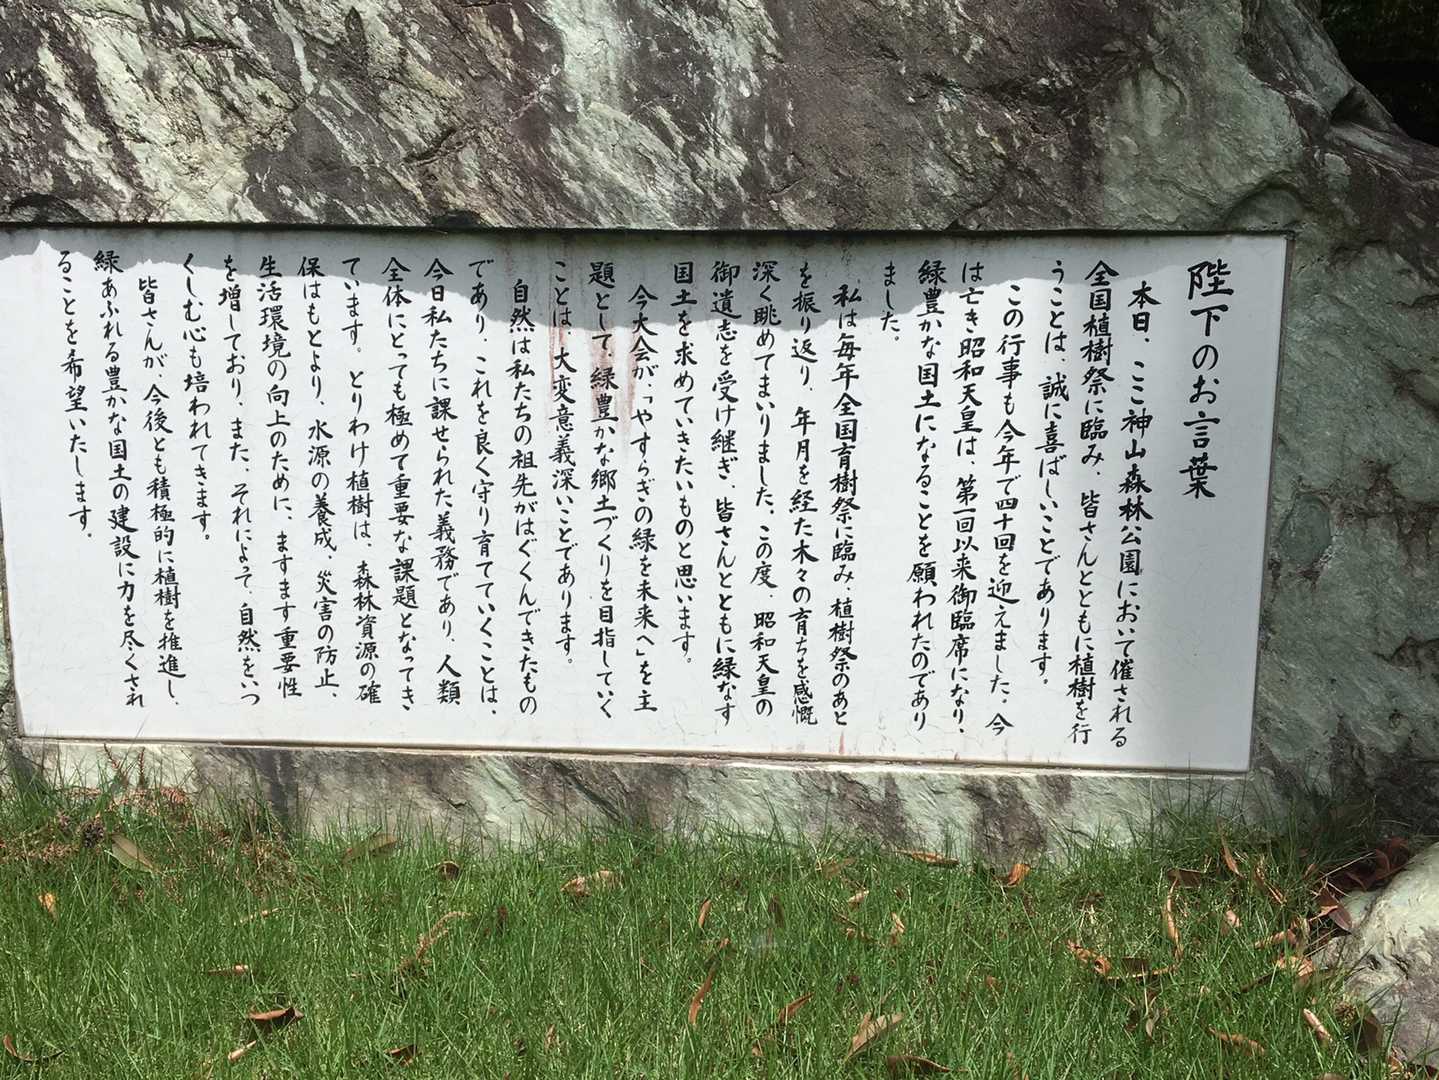 陛下のお言葉
本日、ここ神山森林公園において催される
全国植樹祭に臨み、皆さんとともに植樹を行
うことは、誠に喜ばしいことであります。
この行事も今年で四十回を迎えました。今
は亡き昭和天皇は、第一回以来御臨席になり、
緑豊かな国土になることを願われたのであり
ました。
私は毎年全国育樹祭に臨み、植樹祭のあと
を振り返り、年月を経た木々の育ちを感慨
深く眺めてまいりました。この度、昭和天皇の
御遺志を受け継ぎ、皆さんとともに緑なす
国土を求めていきたいものと思います。
今大会が、「やすらぎの緑を未来へ」を主
題として、緑豊かな郷土づくりを目指していく
ことは、大変意義深いことであります。
自然は私たちの祖先がはぐくんできたもの
であり、これを良く守り育てていくことは、
今日私たちに課せられた義務であり、人類
全体にとっても極めて重要な課題となってき
ています。とりわけ植樹は、森林資源の確
保はもとより、水源の養成、災害の防止、
生活環境の向上のために、ますます重要性
を増しており、また、それによって、自然をいつ
くしむ心も培われてきます。
皆さんが、今後とも積極的に植樹を推進し、
緑あふれる豊かな国土の建設に力を尽くされ
ることを希望いたします。